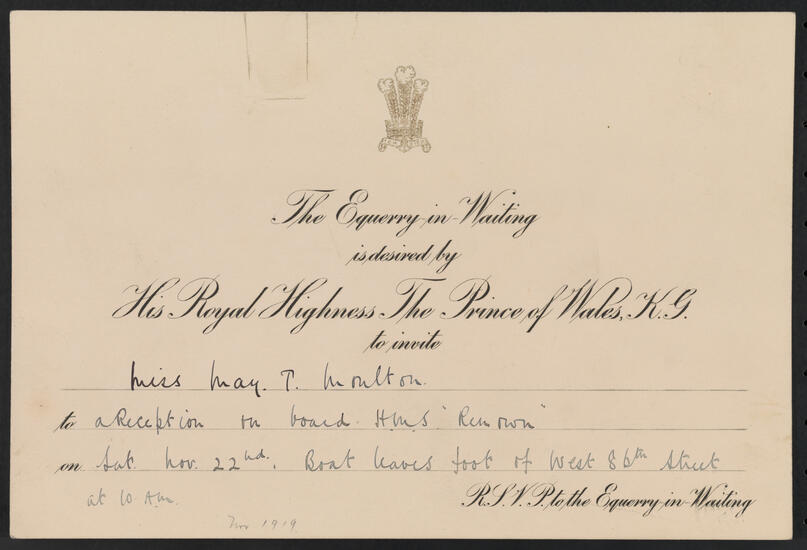 The Equerry-in-Waiting
is desired by
His Royal Highness The Prince of Wales, K.G.
to invite
Miss May. T. Moulton.
to a Reception on board H.M.S "Renown"
on Sat. Nov. 22nd. Boat leaves foot of West 86th Street
at 10 A.M.
R.S.V.P. to the Equerry-in-Waiting
Nov 1919